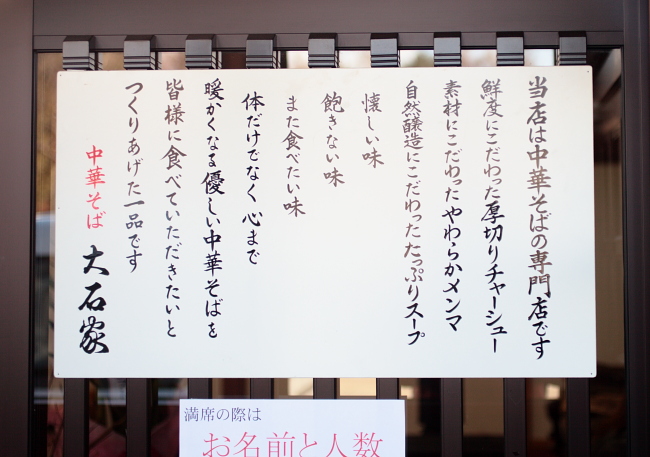 当店は中華そばの専門店です
鮮度にこだわった厚切りチャーシュー
素材にこだわったやわらかメンマ
自然醸造にこだわったたっぷりスープ
懐しい味
飽きない味
また食べたい味
体だけでなく心まで
暖かくなる優しい中華そばを
皆様に食べていただきたいと
つくりあげた一品です
中華そば 大石家
満席の際は
お名前と人数